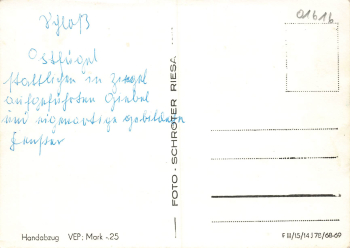 Schloß
01616
Ostflügel
stattlichen in Ziegel
aufgeführten Giebel
und eigenartige gebildete
Fenster
FOTO - SCHRÖTER RIESA
Handabzug VEP: Mark -.25
F III/15/14 J 78/68-69